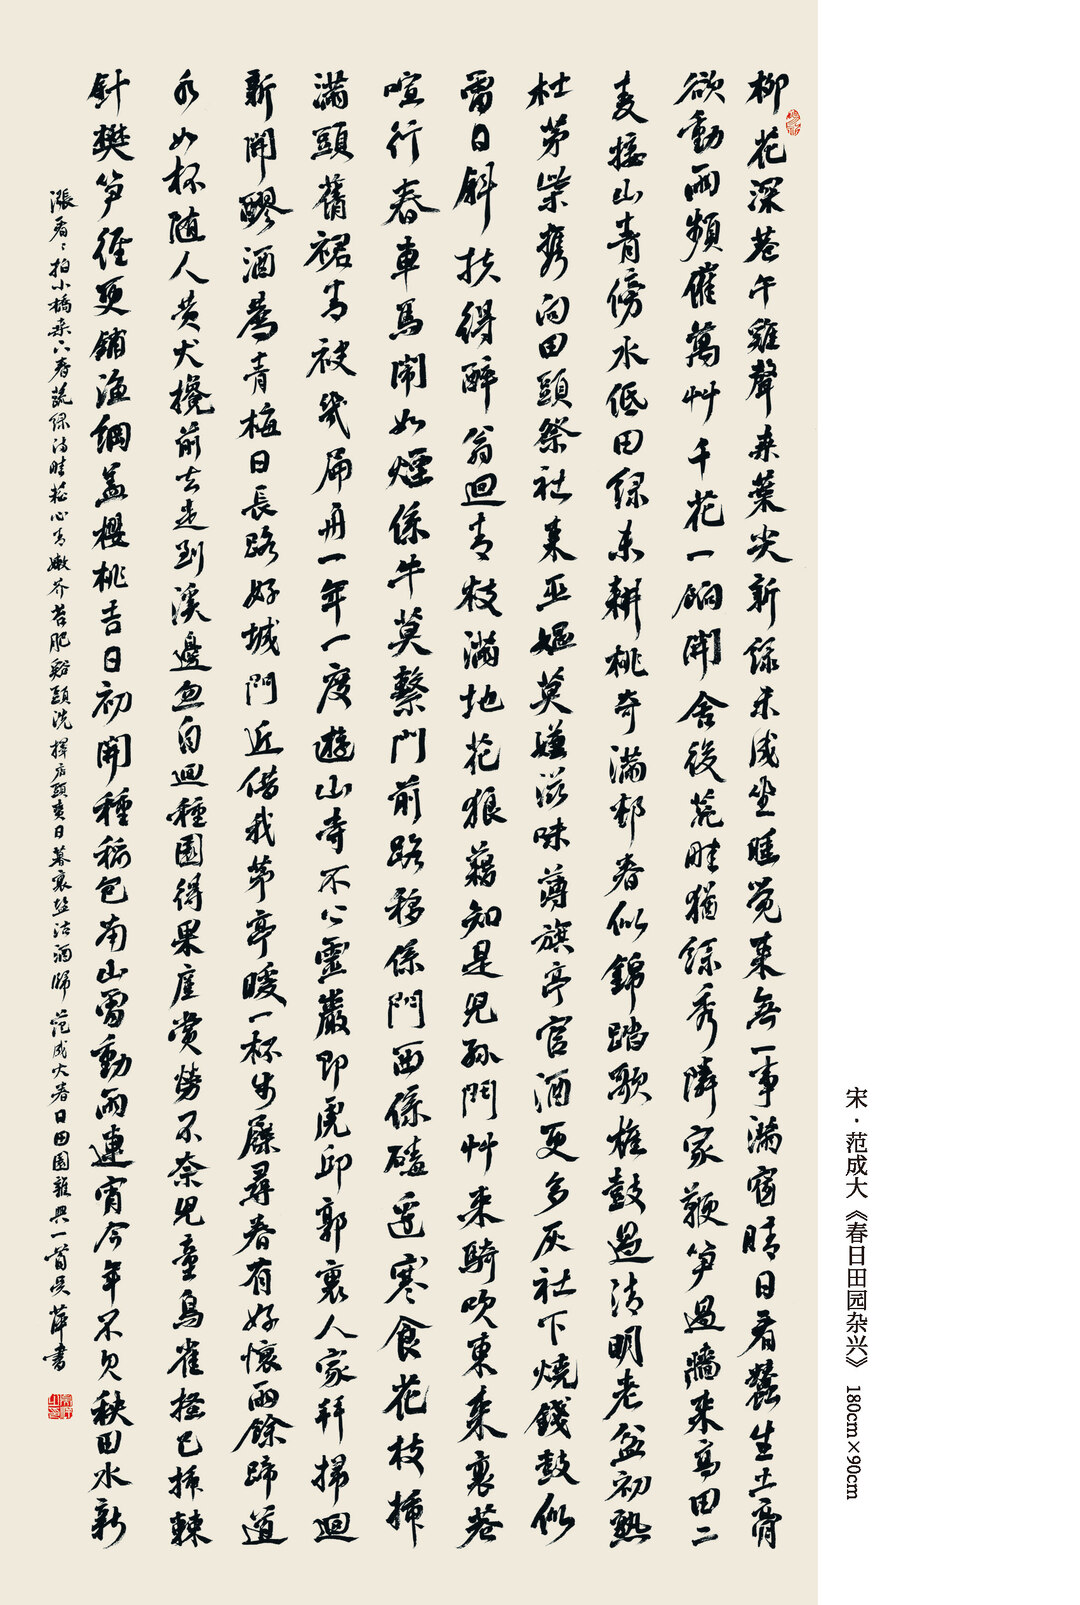 柳花深巷午雞聲桑葉尖新綠未成坐睡覺來無一事滿窗晴日看蠶生土膏
欲動雨頻催萬艸千花一餉開舍後荒畦猶綠秀隣家鞭筍過牆來高田二
麦接山青傍水低田綠未耕桃杏滿邨春似錦踏歌椎鼓過清明老盆初熟
杜茅柴攜向田頭祭社來巫媼莫嫌滋味薄旗亭官酒更多灰社下燒錢鼓似
雷日斜扶得醉翁迴青枝滿地花狼藉知是兒孫鬥艸來騎吹東來裏巷
喧行春車馬鬧如煙係牛莫繫門前路移係門西係碡邊寒食花枝插
滿頭蒨裙青袂幾扁舟一年一度遊山寺不上靈巖即虎邱郭裏人家拜掃迴
新開醪酒薦青梅日長路好城門近借我茅亭暖一杯步屧尋春有好懷雨餘蹄道
水如杯隨人黄犬攙前去走到溪邊忽自迴種園得果廑賞勞不奈兒童鳥雀搔已插棘
針樊筍徑更鋪漁網蓋櫻桃吉日初開種稻包南山雷動雨連宵今年不欠秧田水新
漲看々拍小橋桑下春蔬綠滿畦菘心青嫩芥苔肥谿頭洗擇店頭賣日暮裹鹽沽酒歸 范成大春日田園雜興一首吳萍書
宋·范成大《春日田园杂兴》 180cm×90cm